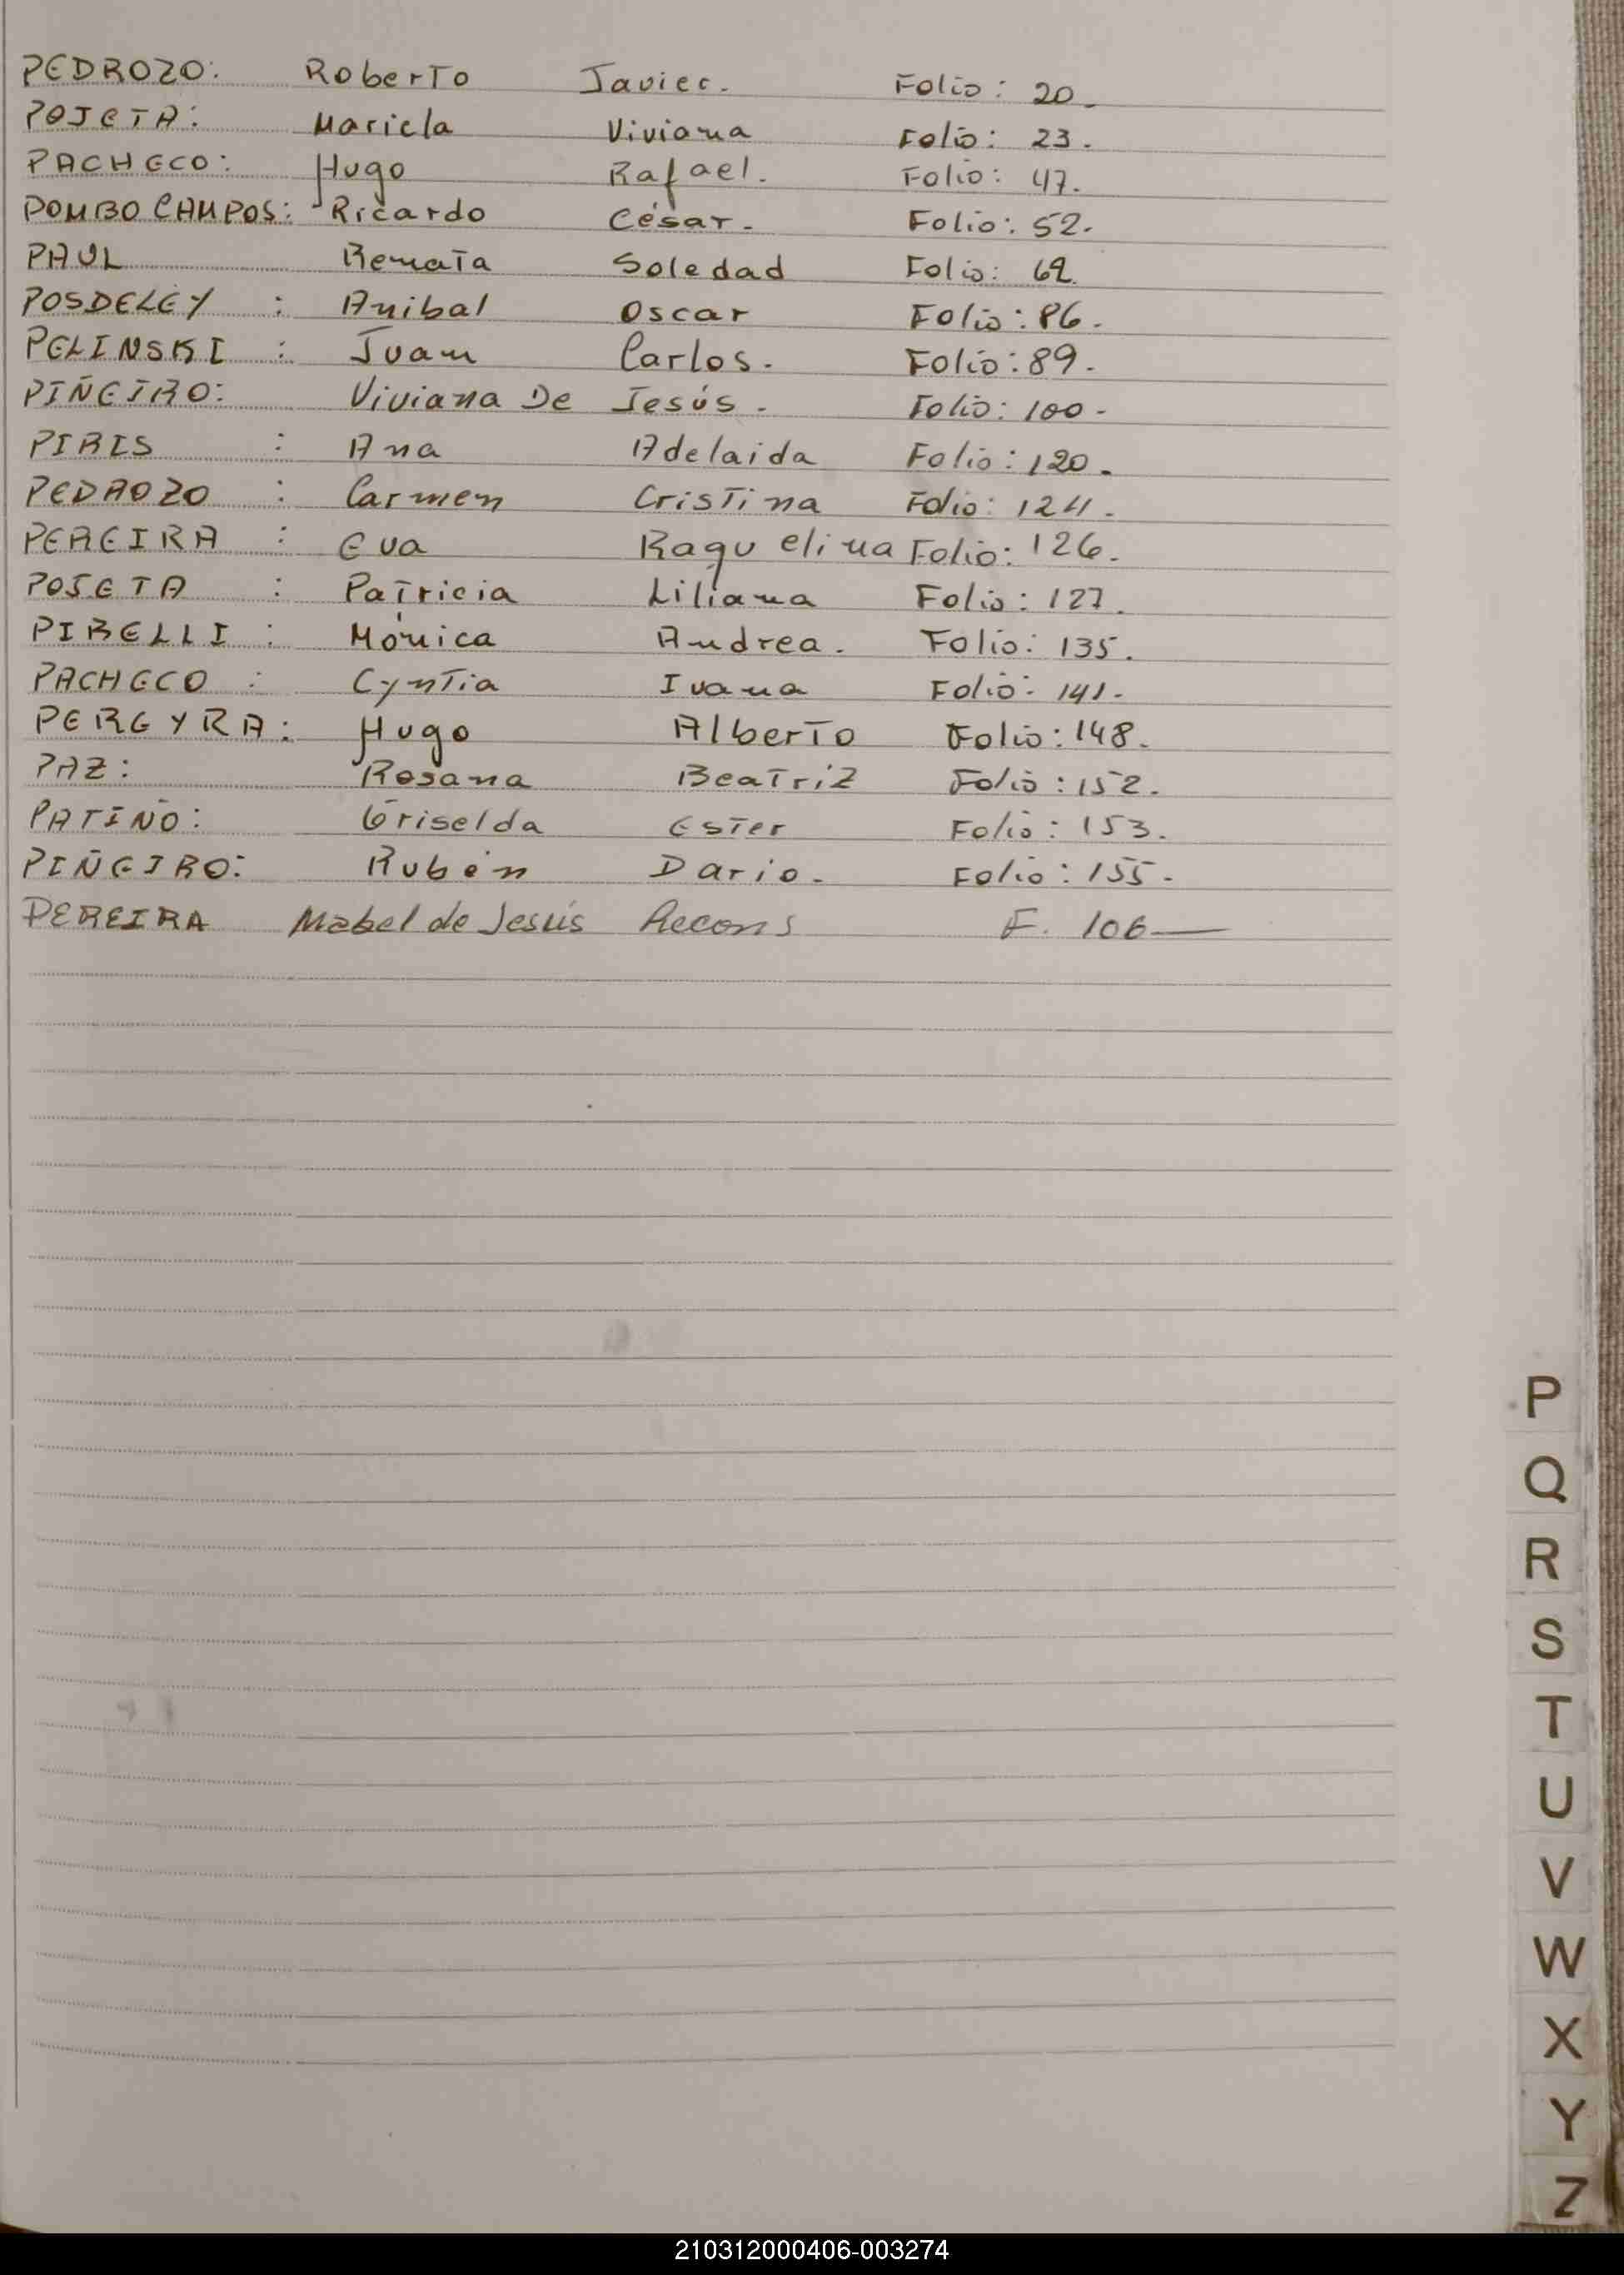 PEDROZO: Roberto Javier. Folio: 20.
POJETA: Mariela Viviana Folio: 23.
PACHECO: Hugo Rafael. Folio: 47.
POMBO CAMPOS: Ricardo César. Folio: 52.
PAUL Renata Soledad Folio: 62
POSDELEY : Anibal Oscar Folio: 86.
PELINSKI : Juan Carlos. Folio: 89.
PIÑEIRO: Viviana De Jesús. Folio: 100.
PIRIS : Ana Adelaida Folio: 120.
PEDROZO : Carmen Cristina Folio: 124.
PEREIRA : Eva Raquelina Folio: 126.
POJETA : Patricia Liliana Folio: 127.
PIRELLI : Mónica Andrea. Folio: 135.
PACHECO : Cyntia Ivana Folio: 141.
PEREYRA: Hugo Alberto Folio: 148.
PAZ: Rosana Beatriz Folio: 152.
PATIÑO: Griselda Ester Folio: 153.
PIÑEIRO: Rubén Dario. Folio: 155.
PEREIRA Mabel de Jesús Recons F. 106
P
Q
R
S
T
U
V
W
X
Y
Z
210312000406-003274